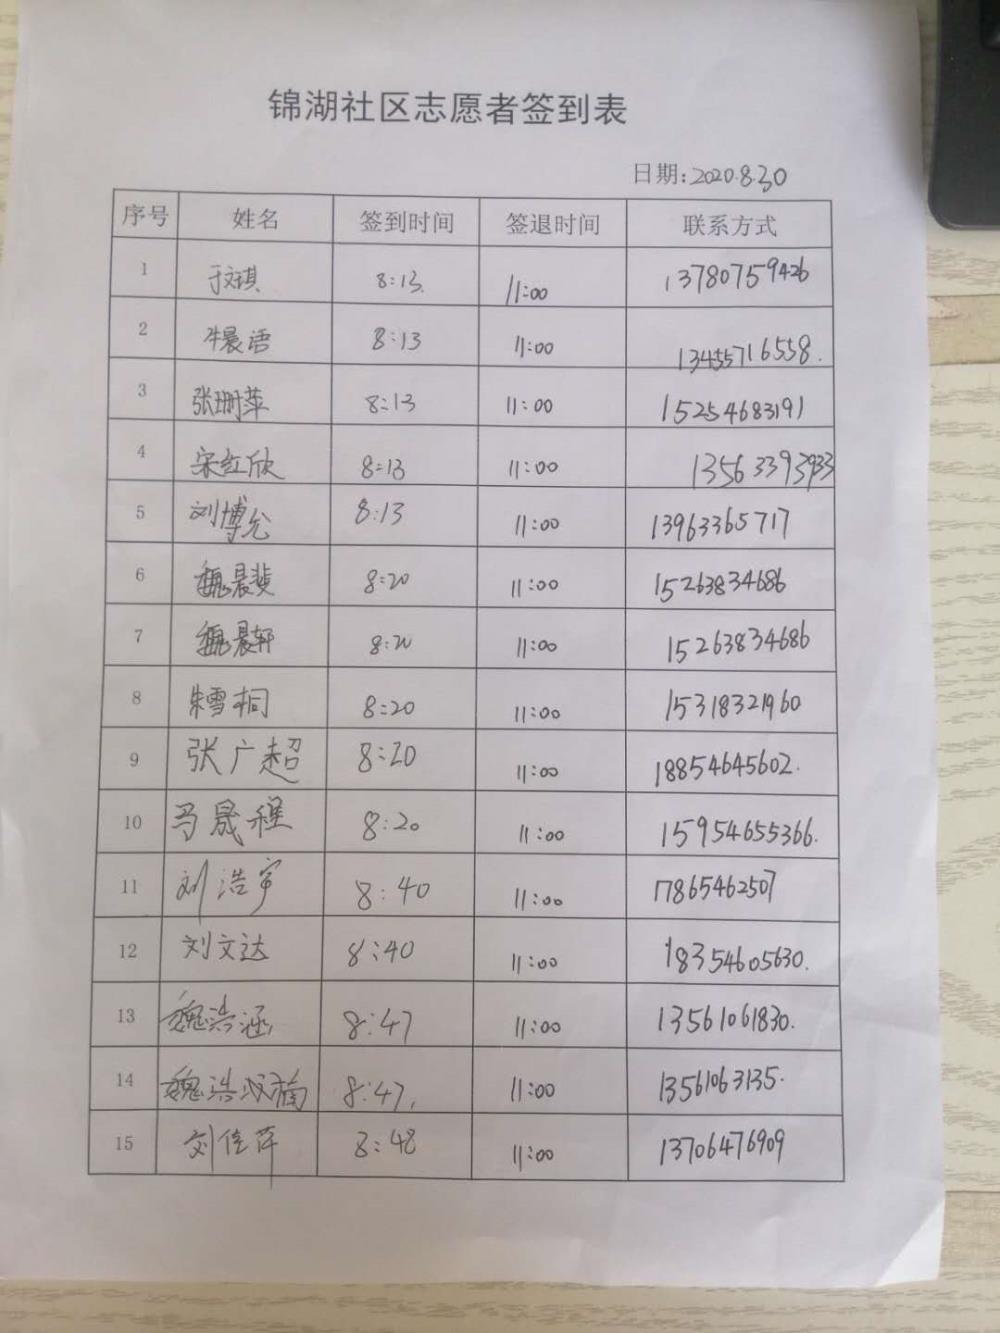 锦湖社区志愿者签到表
日期:2020.8.30
序号 姓名 签到时间 签退时间 联系方式
1 于文琪 8:13. 11:00 13780759426
2 牛晨语 8:13 11:00 13455716558.
3 张珊萍 8:13 11:00 15254683191
4 宋红欣 8:13 11:00 13563393933
5 刘博允 8:13 11:00 13963365717
6 魏晨斐 8:20 11:00 15263834686
7 魏晨轩 8:20 11:00 15263834686
8 朱雪桐 8:20 11:00 15318321960
9 张广超 8:20 11:00 18854645602.
10 马晟程 8:20 11:00 15954655366.
11 刘浩宇 8:40 11:00 17865462507
12 刘文达 8:40 11:00 18354605630.
13 魏浩涵 8:47 11:00 13561061830.
14 8:47, 11:00 13561063135.
15 刘佳萍 8:48 11:00 13706476909